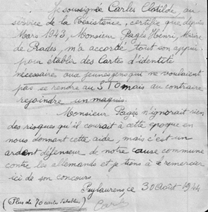 Je soussigné Carles Clotilde au
service de la Résistance, certifie que dès
Mars 1943, Monsieur Pagès Henri, maire
de Prades, m'a accordé tout son appui
pour établir des Cartes d'identité
nécessaires aux jeunes gens qui ne voulaient
pas se rendre au S T O mais au contraire
rejoindre un maquis.
Monsieur Pagès n'ignorait rien
des risques qu'il courait à cette époque en
nous donnant cette aide, mais c'est un
ardent défenseur de notre cause commune
contre les allemands et je tiens à le remercier
ici de son concours.
Puylaurens le 30 août 1944
(Plus de 70 cartes établies)